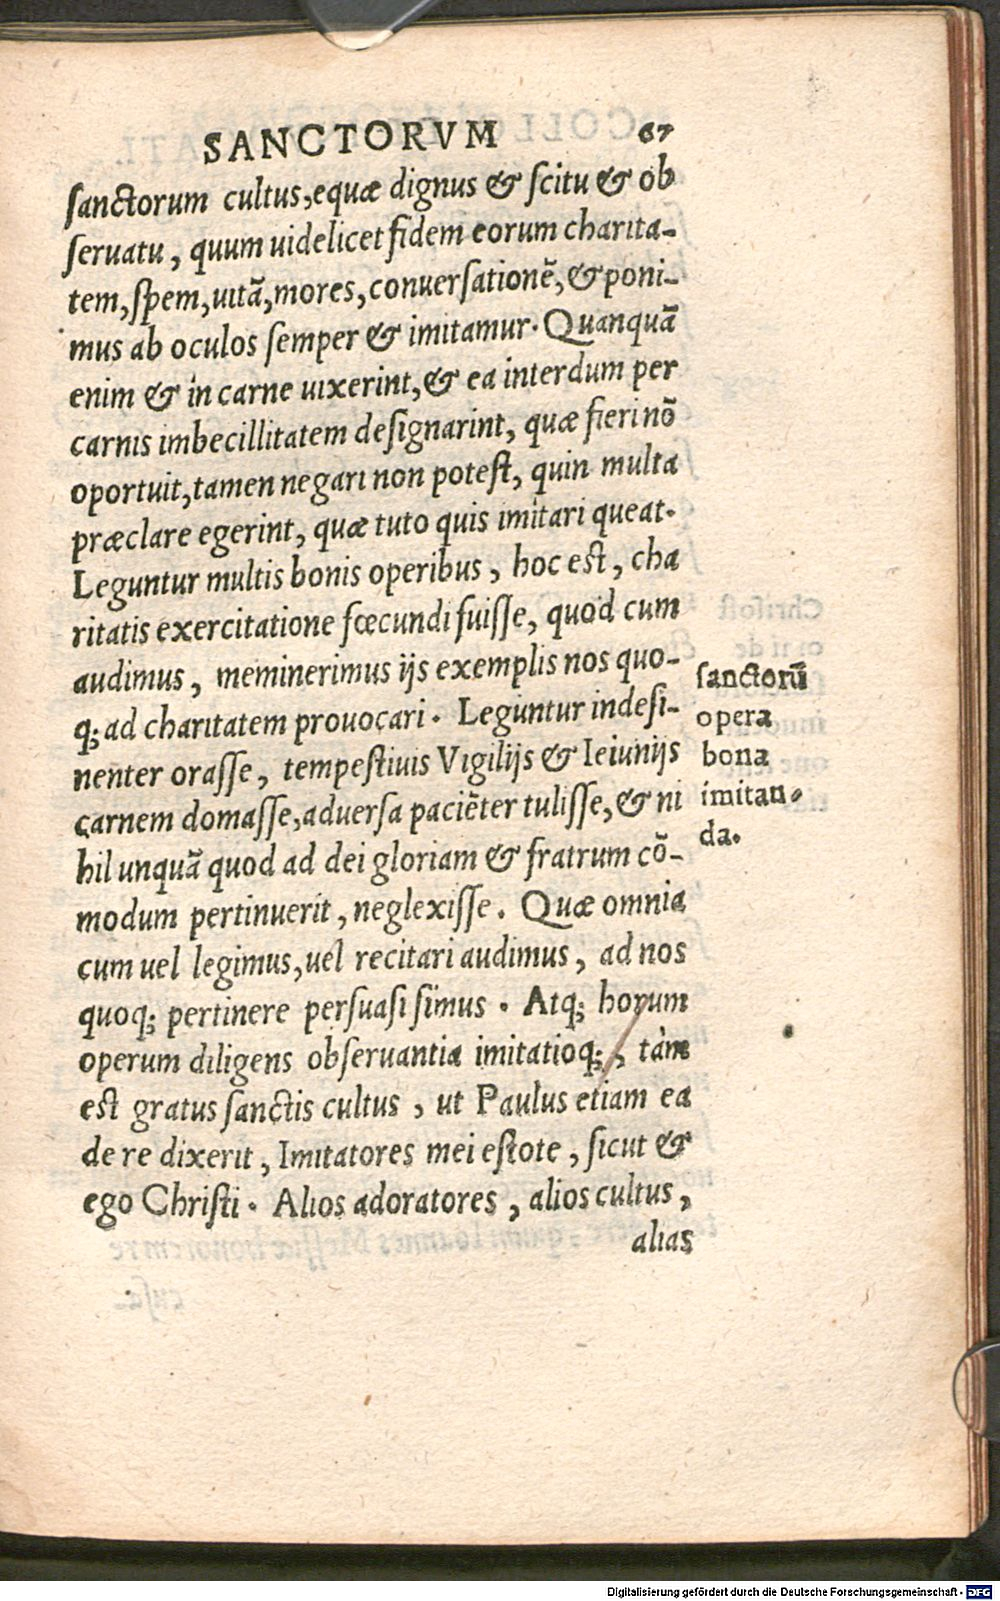 SANCTORVM 67
sanctorum cultus, equæ dignus & scitu & ob
seruatu, quum uidelicet fidem eorum charita-
tem, spem, uitã, mores, conuersationẽ, & poni-
mus ab oculos semper & imitamur. Quanquã
enim & in carne uixerint, & ea interdum per
carnis imbecillitatem designarint, quæ fieri nõ
oportuit, tamen negari non potest, quin multa
præclare egerint, quæ tuto quis imitari queat.
Leguntur multis bonis operibus, hoc est, cha
ritatis exercitatione fœcundi fuisse, quod cum
audimus, meminerimus ijs exemplis nos quo-
q; ad charitatem prouocari. Leguntur indesi-
nenter orasse, tempestiuis Vigilijs & Ieiunijs
carnem domasse, aduersa paciẽter tulisse, & ni
hil unquã quod ad dei gloriam & fratrum cõ-
modum pertinuerit, neglexisse. Quæ omnia
cum uel legimus, uel recitari audimus, ad nos
quoq; pertinere persuasi simus. Atq; horum
operum diligens obseruantia imitatioq;, tàm
est gratus sanctis cultus, ut Paulus etiam ea
de re dixerit, Imitatores mei estote, sicut &
ego Christi. Alios adoratores, alios cultus,
alias
sanctorũ
opera
bona
imitan-
da.
Digitalisierung gefördert durch die Deutsche Forschungsgemeinschaft - DFG